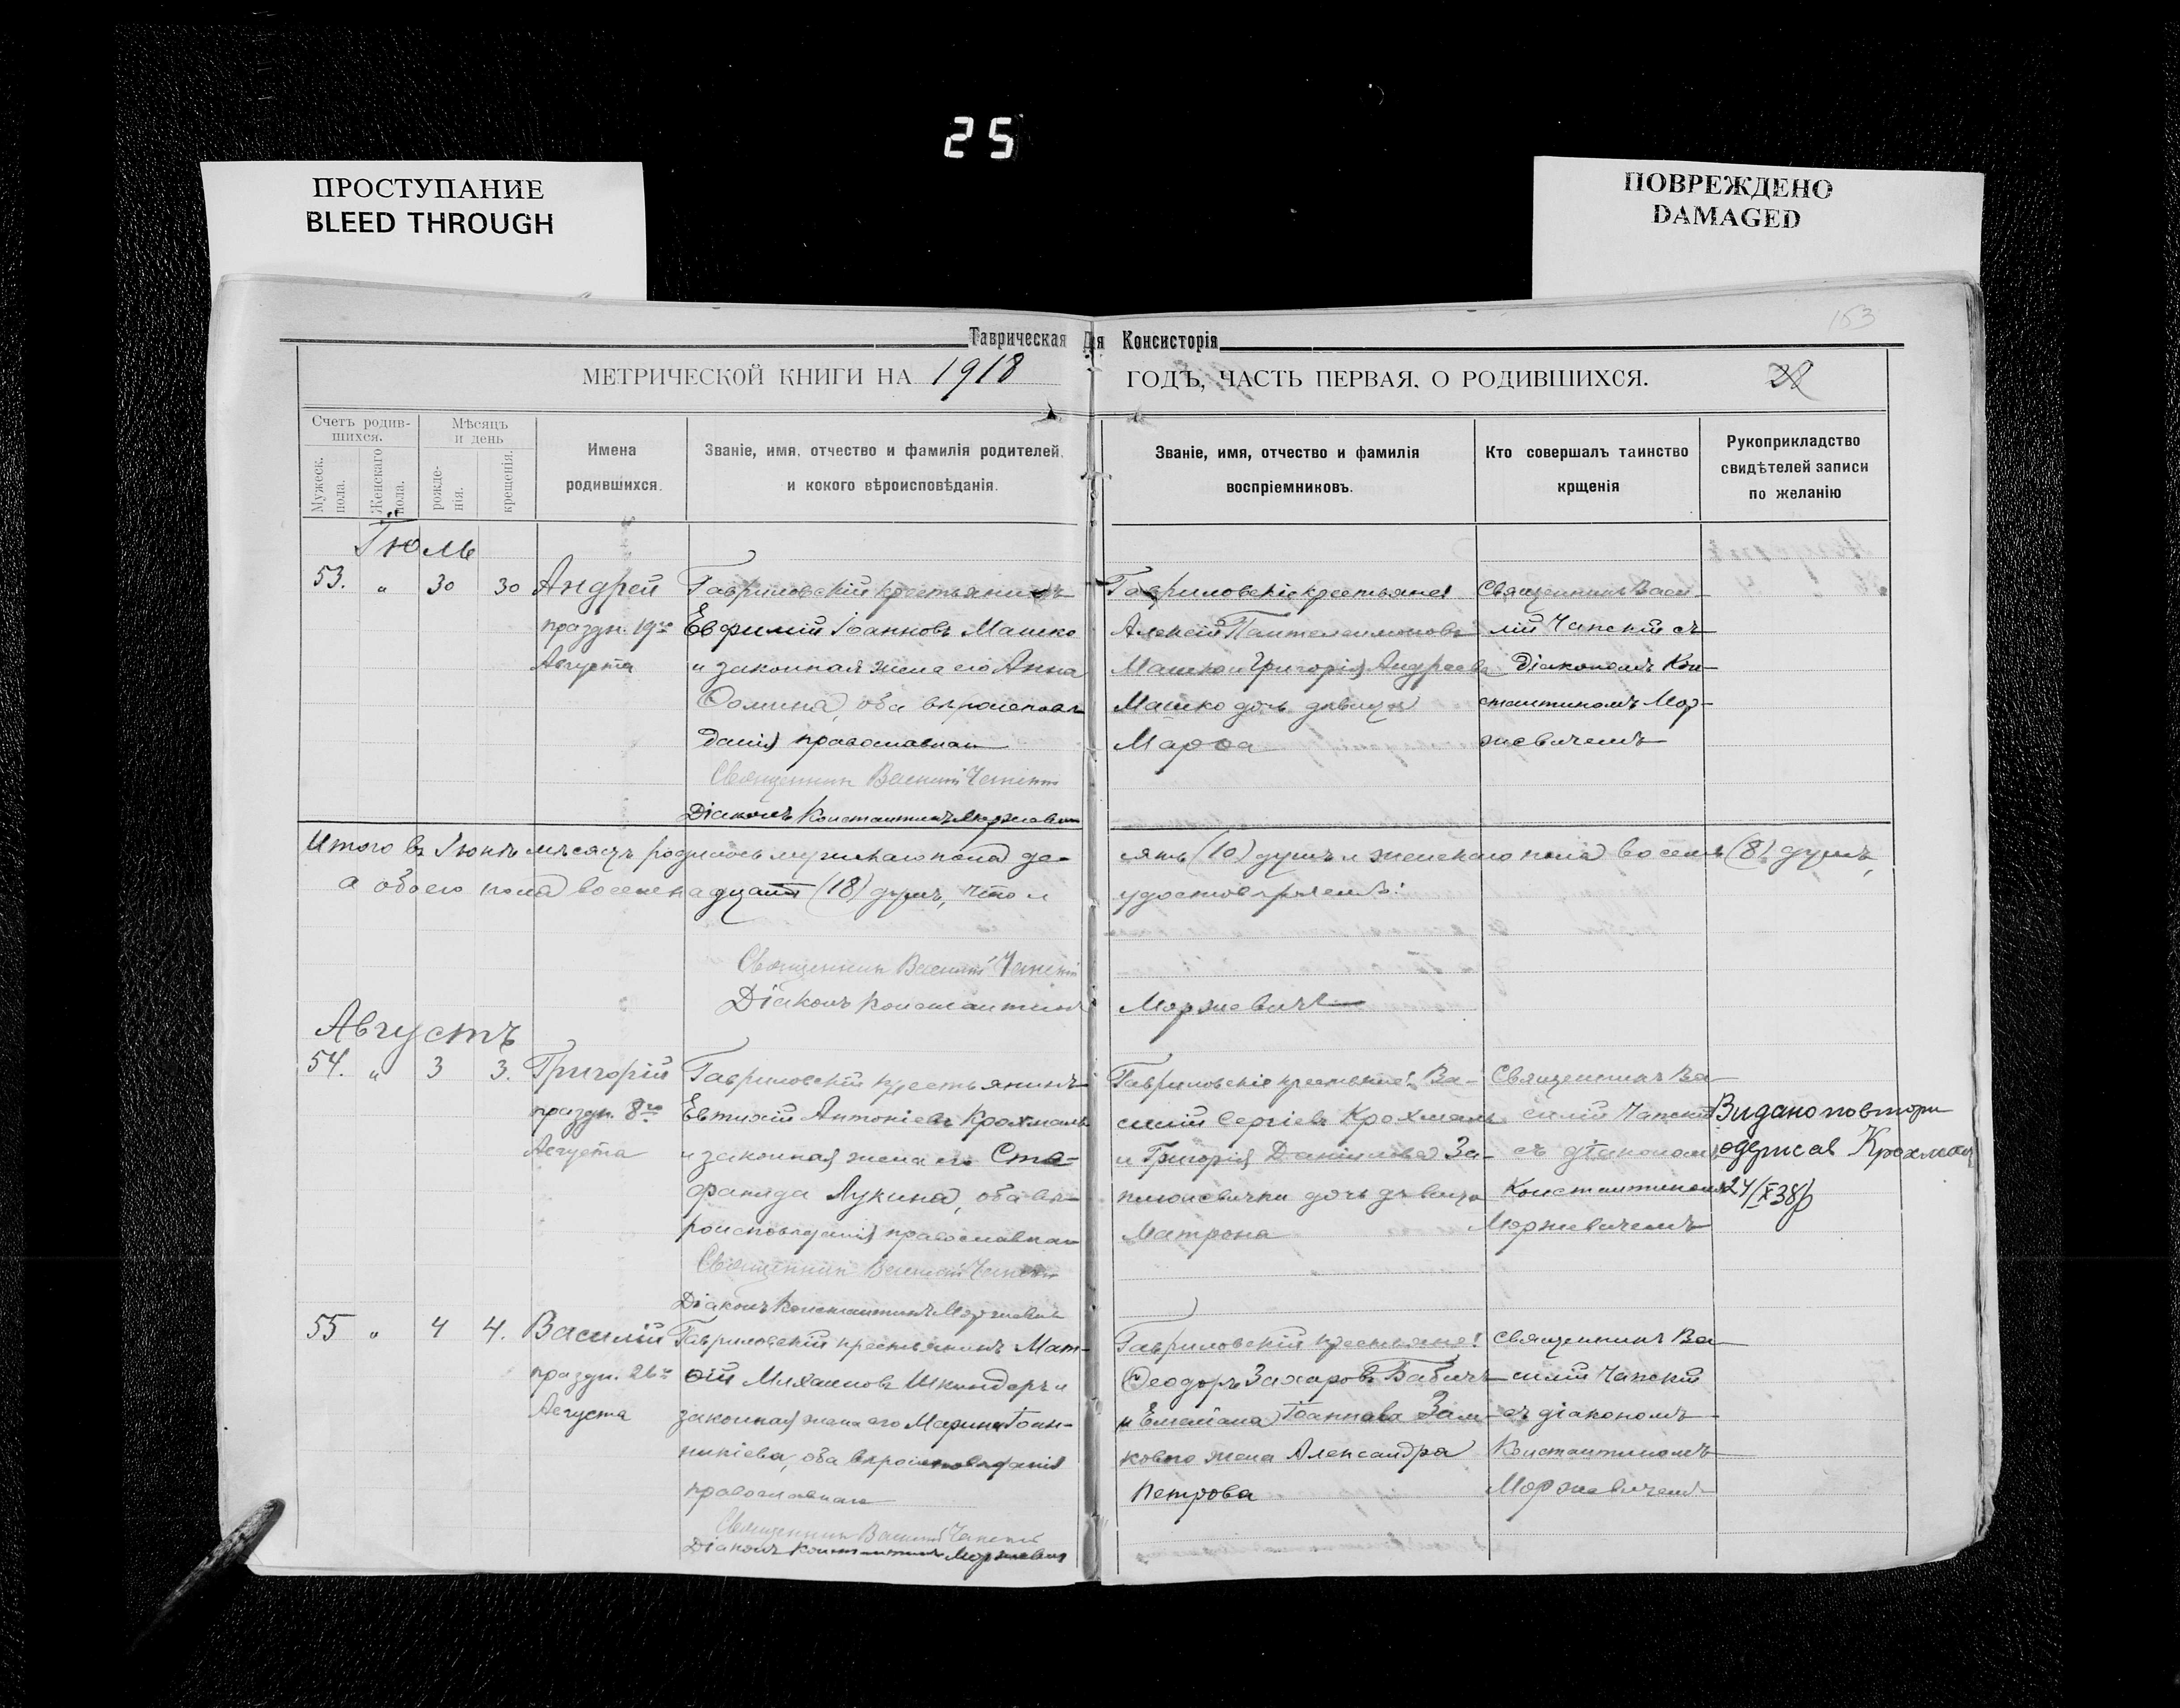 25
ПРОСТУПАНИЕ
BLEED THROUGH
ПОВРЕЖДЕНО
DAMAGED
153
Таврическая Д я Консисторія
МЕТРИЧЕСКОЙ КНИГИ НА 1918 ГОДЪ, ЧАСТЬ ПЕРВАЯ. О РОДИВШИХСЯ.
28
Счетъ родив-
шихся.
Мужеск.
пола.
Женскаго
пола.
Мѣсяцъ
и день
рожде-
нія.
крещенія.
Имена
родившихся.
Званіе, имя, отчество и фамилія родителей,
и кокого вѣроисповѣданія.
Званіе, имя, отчество и фамилія
воспріемниковъ.
Кто совершалъ таинство
крщенія
Рукоприкладство
свидѣтелей записи
по желанію
Іюль
53. " 30 30
Андрей
праздн. 19го
Августа
Гавриловскій крестьянинъ
Евфимій Іоанновъ Машко
и законная жена его Анна
Ѳомина, оба вѣроисповѣ
данія православнаго
Священникъ Василій Чапскій
Діаконъ Константинъ Моржевичъ
Гавриловскіе крестьяне:
Алексій Пантелеимоновъ
Машко и Григорія Андреева
Машко дочь дѣвица
Марѳа
Священникъ Васи-
лій Чапскій съ
діакономъ Кон-
стантиномъ Мор-
жевичемъ
Итого въ Іюлѣ мѣсяцѣ родилось мужскаго пола де-
сять (10) душъ и женскаго пола восемь (8) душъ,
а обоего пола восемнадцать (18) душъ, что и
удостовѣряемъ:
Священникъ Василій Чапскій
Діаконъ Константинъ Моржевичъ
Августъ
54. " 3 3.
Григорій
праздн. 8го
Августа
Гавриловскій крестьянинъ
Евтихій Антоніевъ Крохмаль
и законная жена его Сте-
фанида Лукина, оба вѣ-
роисповѣданія православнаго
Священникъ Василій Чапскій
Діаконъ Константинъ Моржевичъ
Гавриловскіе крестьяне: Ва-
силій Сергіевъ Крохмаль
и Григорія Даніилова За-
дочь дѣвица
Матрона
Священникъ Ва-
силій Чапскій
съ діакономъ
Константиномъ
Моржевичемъ
Видано повторн
одержав Крохмаль
24/X 38р
55 " 4 4.
Василій
праздн. 26го
Августа
Гавриловскій крестьянинъ Мат-
ѳій Михаиловъ Шкиндеръ и
законная жена его Марина Іоан-
никіева, оба вѣроисповѣданія
православнаго
Священникъ Василій Чапскій
Діаконъ Константинъ Моржевичъ
Гавриловскій крестьяне:
Ѳеодоръ Захаровъ Бабичъ
и Емеліана Іоаннова Зам-
кового жена Александра
Петрова
Священникъ Ва-
силій Чапскій
съ діакономъ
Константиномъ
Моржевичемъ